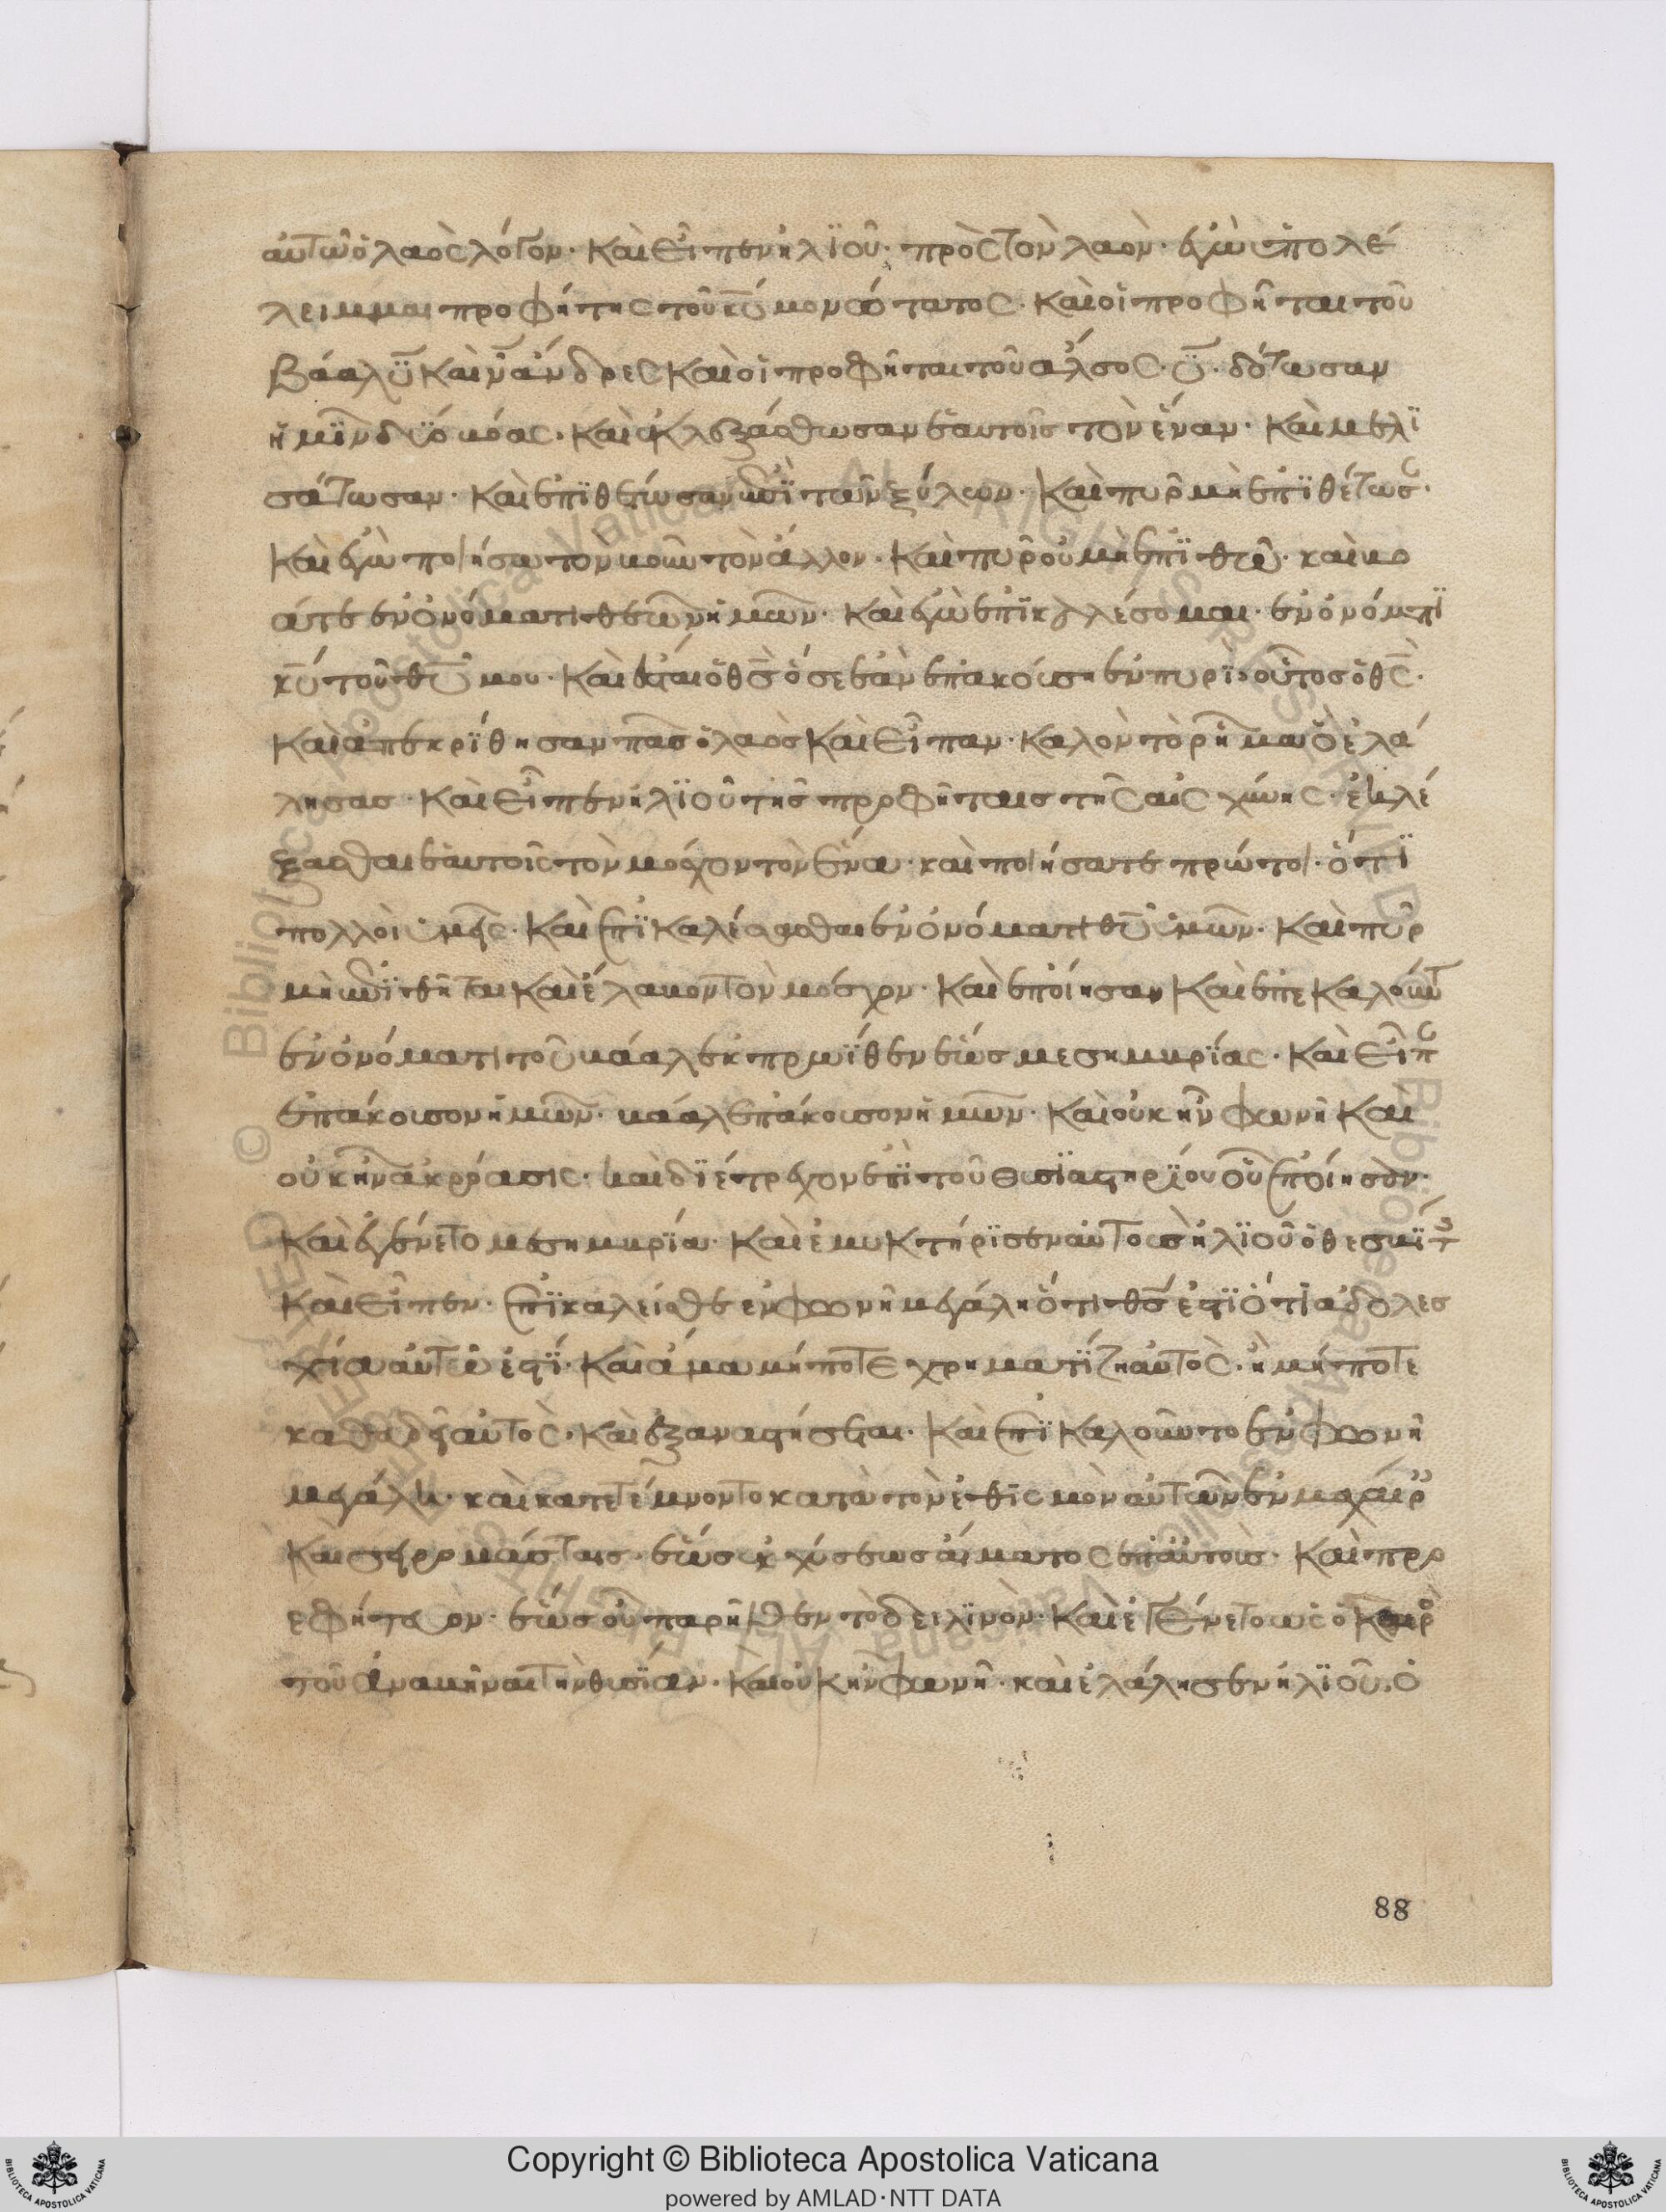 αὐτῶ ὁ λαὸς λόγον· καὶ εἶπεν ἠλϊοῦ· πρὸς τὸν λαὸν· ἐγὼ ὑπολέ
λειμμαι προφήτης τοῦ κ̅υ̅ μονώτατος· καὶ οἱ προφῆται τοῦ
βάαλ ϋ̅ καὶ ν̅ ἄνδρες καὶ οἱ προφῆται τοῦ ἄλσος· ϋ̅· δότωσαν
ἡμῖν δύο βόας· καὶ ἐκλεξάσθωσαν ἑαυτοῖς τὸν ἕναν· καὶ μελϊ
σάτωσαν· καὶ ἐπϊθέτωσαν ἐπῒ τῶν ξύλων· καὶ πῦρ μὴ ἐπϊθέτωσ·
καὶ ἐγὼ ποιήσω τὸν βοῦν τὸν ἄλλον· καὶ πῦρ οὐ μὴ ἐπϊθῶ· καὶ βο
άτε ἐν ὀνόματι θεῶν ἡμῶν· καὶ ἐγὼ ἐπϊκαλέσομαι· ἐν ὀνόματϊ
κ̅υ̅ τοῦ θ̅υ̅ μου· καὶ ἔσται ὁ θ̅ς̅ ὃς ἐὰν ἐπακούση ἐν πυρῒ· οὗτος ὁ θ̅ς̅·
καὶ ἀπεκρϊθησαν πᾶς ὁ λαὸς καὶ εἶπαν· καλὸν τὸ ρῆμα ὃ ἐλά
λησας· καὶ εἶπεν ἠλϊοῦ τῆς προφήταις τῆς αἰσχύνης· ἐκλέ
ξασθαι ἑαυτοῖς τὸν μόσχον τὸν ἕνα· καὶ ποιήσατε πρῶτοι· ὅτϊ
πολλοὶ ὑμεῖς· καὶ ἐπϊκαλέσασθαι ἐν ὀνόματι θ̅υ̅ ὑμῶν· καὶ πῦρ
μὴ ἐπϊθῆται καὶ ἔλαβον τὸν μόσχον· καὶ ἐποίησαν καὶ ἐπεκαλοῦντ
ἐν ὀνόματι τοῦ βάαλ ἐκ πρωΐθεν ἕως μεσημβρίας· καὶ εἶπ
ἐπάκουσον ἡμῶν· βάαλ ἐπάκουσον ἡμῶν· καὶ οὐκ ἦν φωνὴ καὶ
οὐκ ἦν ἀκρόασις· καὶ δϊέτρεχον ἐπὶ τοῦ θυσϊαστηρίου οὗ ἐποίησαν·
καὶ ἐγένετο μεσημβρία· καὶ ἐμυκτήρϊσεν αὐτοὺς ἠλϊοῦ ὁ θεσβϊτ
καὶ εἶπεν· ἐπϊκαλεῖσθε ἐν φωνῆ μεγάλη ὅτι θ̅ς̅ ἐστϊ ὅτι ἀδολεσ
χία αὐτῶ ἐστϊ· καὶ ἅμα μήποτε χρηματίζη αὐτὸς· ἢ μήποτε
καθεύδει αὐτὸς· καὶ ἐξαναστήσεται· καὶ ἐπϊκαλοῦντο ἐν φωνῆ
μεγάλη· καὶ κατετέμνοντο κατὰ τὸν ἐθισμὸν αὐτῶν ἐν μαχαίρ
καὶ σειρομάσταις· ἕως ἐκχύσεως αἵματος ἐπ αὐτοὺς· καὶ προ
εφήτευον· ἕως οὗ παρῆλθεν τὸ δειλϊνὸν· καὶ ἐγένετο ὡς ὁ καιρ
τοῦ ἀναβῆναι τὴν θυσϊαν· καὶ οὐκ ἦν φωνὴ· καὶ ἐλάλησεν ἠλϊοῦ· ὁ
88
Copyright © Biblioteca Apostolica Vaticana
powered by AMLAD·NTT DATA